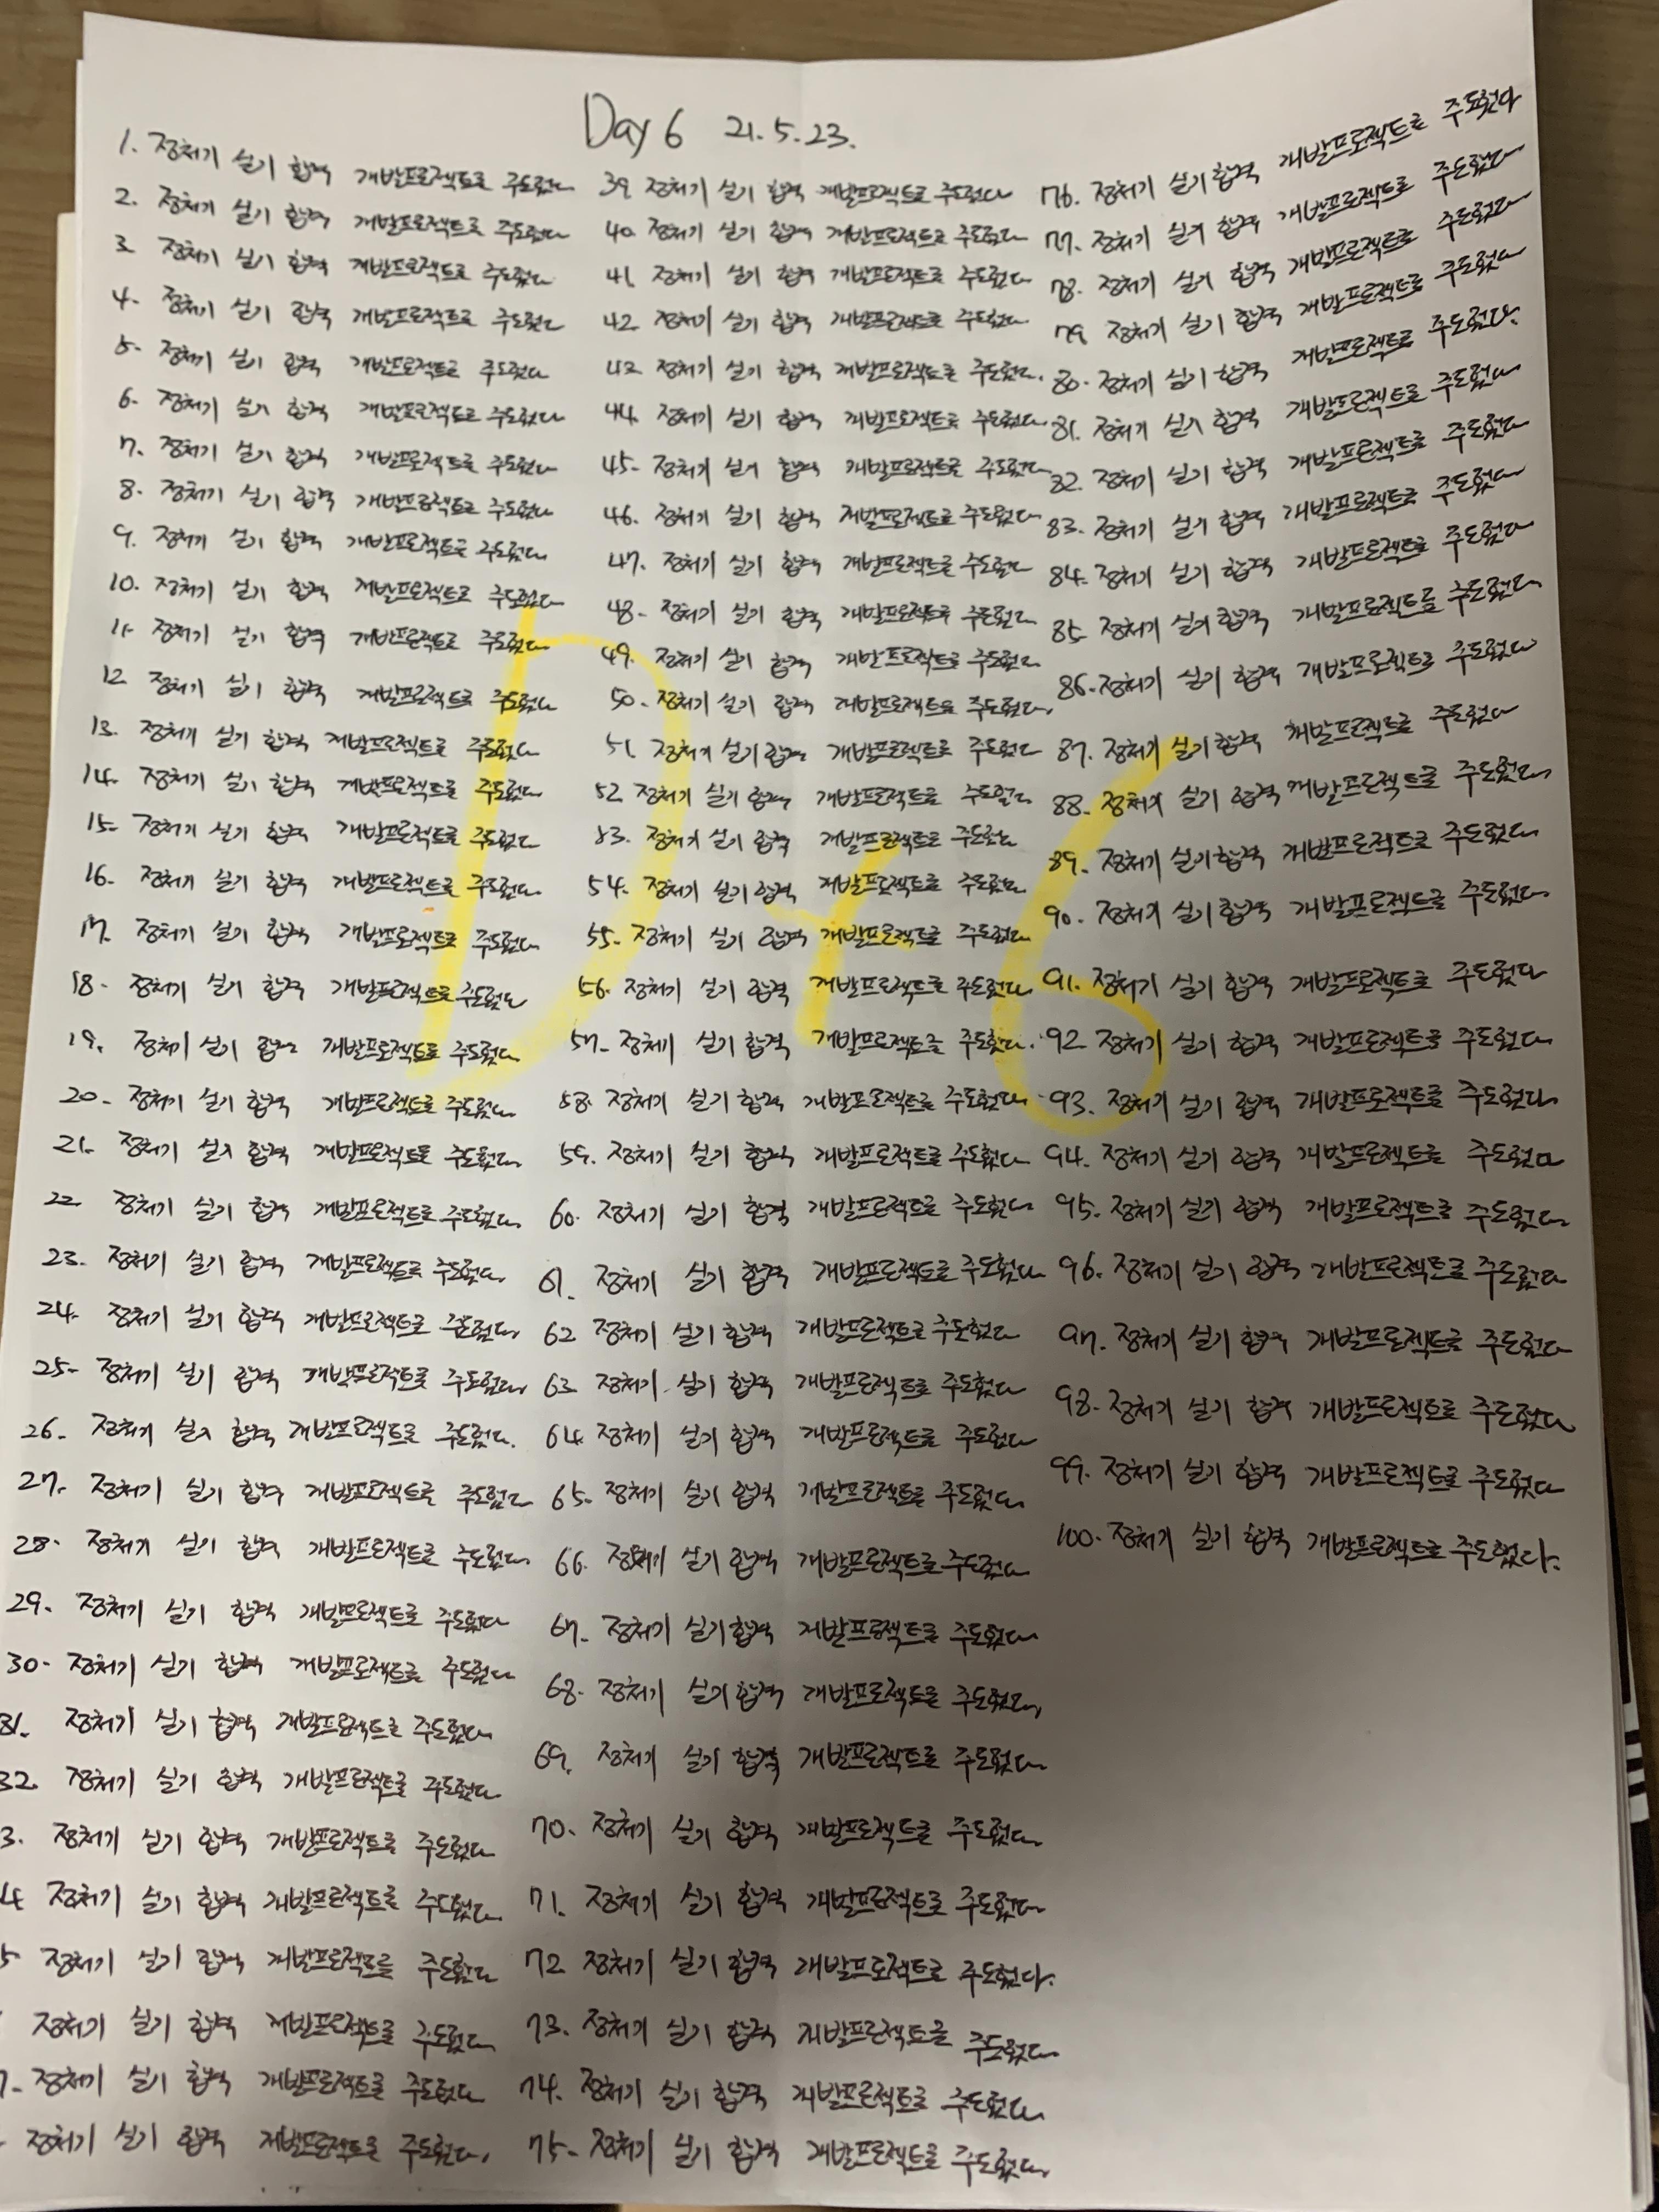 Day 6 21.5.23.
1. 정처기 실기 합격 개발프로젝트를 주도했다
2. 정처기 실기 합격 개발프로젝트를 주도했다
3. 정처기 실기 합격 개발프로젝트를 주도했다
4. 정처기 실기 합격 개발프로젝트를 주도했다
5. 정처기 실기 합격 개발프로젝트를 주도했다
6. 정처기 실기 합격 개발프로젝트를 주도했다
7. 정처기 실기 합격 개발프로젝트를 주도했다
8. 정처기 실기 합격 개발프로젝트를 주도했다
9. 정처기 실기 합격 개발프로젝트를 주도했다
10. 정처기 실기 합격 개발프로젝트를 주도했다
11. 정처기 실기 합격 개발프로젝트를 주도했다
12. 정처기 실기 합격 개발프로젝트를 주도했다
13. 정처기 실기 합격 개발프로젝트를 주도했다
14. 정처기 실기 합격 개발프로젝트를 주도했다
15. 정처기 실기 합격 개발프로젝트를 주도했다
16. 정처기 실기 합격 개발프로젝트를 주도했다
17. 정처기 실기 합격 개발프로젝트를 주도했다
18. 정처기 실기 합격 개발프로젝트를 주도했다
19. 정처기 실기 합격 개발프로젝트를 주도했다
20. 정처기 실기 합격 개발프로젝트를 주도했다
21. 정처기 실기 합격 개발프로젝트를 주도했다
22. 정처기 실기 합격 개발프로젝트를 주도했다
23. 정처기 실기 합격 개발프로젝트를 주도했다
24. 정처기 실기 합격 개발프로젝트를 주도했다
25. 정처기 실기 합격 개발프로젝트를 주도했다
26. 정처기 실기 합격 개발프로젝트를 주도했다.
27. 정처기 실기 합격 개발프로젝트를 주도했다
28. 정처기 실기 합격 개발프로젝트를 주도했다
29. 정처기 실기 합격 개발프로젝트를 주도했다
30. 정처기 실기 합격 개발프로젝트를 주도했다
31. 정처기 실기 합격 개발프로젝트를 주도했다
32. 정처기 실기 합격 개발프로젝트를 주도했다
3. 정처기 실기 합격 개발프로젝트를 주도했다
4. 정처기 실기 합격 개발프로젝트를 주도했다
5 정처기 실기 합격 개발프로젝트를 주도했다
정처기 실기 합격 개발프로젝트를 주도했다
7. 정처기 실기 합격 개발프로젝트를 주도했다
정처기 실기 합격 개발프로젝트를 주도했다.
39. 정처기 실기 합격 개발프로젝트를 주도했다
40. 정처기 실기 합격 개발프로젝트를 주도했다
41. 정처기 실기 합격 개발프로젝트를 주도했다
42. 정처기 실기 합격 개발프로젝트를 주도했다
43. 정처기 실기 합격 개발프로젝트를 주도했다.
44. 정처기 실기 합격 개발프로젝트를 주도했다.
45. 정처기 실기 합격 개발프로젝트를 주도했다
46. 정처기 실기 합격 개발프로젝트를 주도했다
47. 정처기 실기 합격 개발프로젝트를 주도했다
48. 정처기 실기 합격 개발프로젝트를 주도했다
49. 정처기 실기 합격 개발프로젝트를 주도했다
50. 정처기 실기 합격 개발프로젝트를 주도했다.
51. 정처기 실기 합격 개발프로젝트를 주도했다
52. 정처기 실기 합격 개발프로젝트를 주도했다
53. 정처기 실기 합격 개발프로젝트를 주도했다
54. 정처기 실기 합격 개발프로젝트를 주도했다
55. 정처기 실기 합격 개발프로젝트를 주도했다
56. 정처기 실기 합격 개발프로젝트를 주도했다.
57. 정처기 실기 합격 개발프로젝트를 주도했다.
58. 정처기 실기 합격 개발프로젝트를 주도했다
59. 정처기 실기 합격 개발프로젝트를 주도했다
60. 정처기 실기 합격 개발프로젝트를 주도했다
61. 정처기 실기 합격 개발프로젝트를 주도했다
62 정처기 실기 합격 개발프로젝트를 주도했다
63 정처기 실기 합격 개발프로젝트를 주도했다
64. 정처기 실기 합격 개발프로젝트를 주도했다
65. 정처기 실기 합격 개발프로젝트를 주도했다
66. 정처기 실기 합격 개발프로젝트를 주도했다
67. 정처기 실기 합격 개발프로젝트를 주도했다
68. 정처기 실기 합격 개발프로젝트를 주도했다
69. 정처기 실기 합격 개발프로젝트를 주도했다
70. 정처기 실기 합격 개발프로젝트를 주도했다
71. 정처기 실기 합격 개발프로젝트를 주도했다
72. 정처기 실기 합격 개발프로젝트를 주도했다.
73. 정처기 실기 합격 개발프로젝트를 주도했다
74. 정처기 실기 합격 개발프로젝트를 주도했다
75. 정처기 실기 합격 개발프로젝트를 주도했다
76. 정처기 실기 합격 개발프로젝트를 주도했다
77. 정처기 실기 합격 개발프로젝트로 주도했다
78. 정처기 실기 합격 개발프로젝트로 주도했다
79. 정처기 실기 합격 개발프로젝트로 주도했다
80. 정처기 실기 합격 개발프로젝트로 주도했다.
81. 정처기 실기 합격 개발프로젝트를 주도했다
82. 정처기 실기 합격 개발프로젝트를 주도했다
83. 정처기 실기 합격 개발프로젝트를 주도했다
84. 정처기 실기 합격 개발프로젝트를 주도했다
85. 정처기 실기 합격 개발프로젝트를 주도했다
86. 정처기 실기 합격 개발프로젝트를 주도했다
87. 정처기 실기 합격 개발프로젝트를 주도했다
88. 정처기 실기 합격 개발프로젝트를 주도했다
89. 정처기 실기 합격 개발프로젝트를 주도했다
90. 정처기 실기 합격 개발프로젝트를 주도했다
91. 정처기 실기 합격 개발프로젝트를 주도했다
92. 정처기 실기 합격 개발프로젝트를 주도했다
93. 정처기 실기 합격 개발프로젝트를 주도했다
94. 정처기 실기 합격 개발프로젝트를 주도했다
95. 정처기 실기 합격 개발프로젝트를 주도했다
96. 정처기 실기 합격 개발프로젝트를 주도했다
97. 정처기 실기 합격 개발프로젝트를 주도했다
98. 정처기 실기 합격 개발프로젝트를 주도했다
99. 정처기 실기 합격 개발프로젝트를 주도했다
100. 정처기 실기 합격 개발프로젝트를 주도했다.
D+6